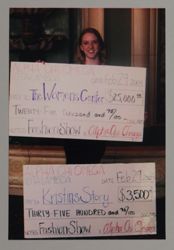 ALPHA CHI OMEGA
DATE Feb 29
The Womens Center $25,000.00
TWENTY FIVE thousand and no/00
Fashion Show Alpha Chi Omega
ALPHA CHI OMEGA
DATE Feb 29
Kristin's Story $3,500
THIRTY FIVE HUNDRED and no/00
Fashion Show Alpha Chi Omega